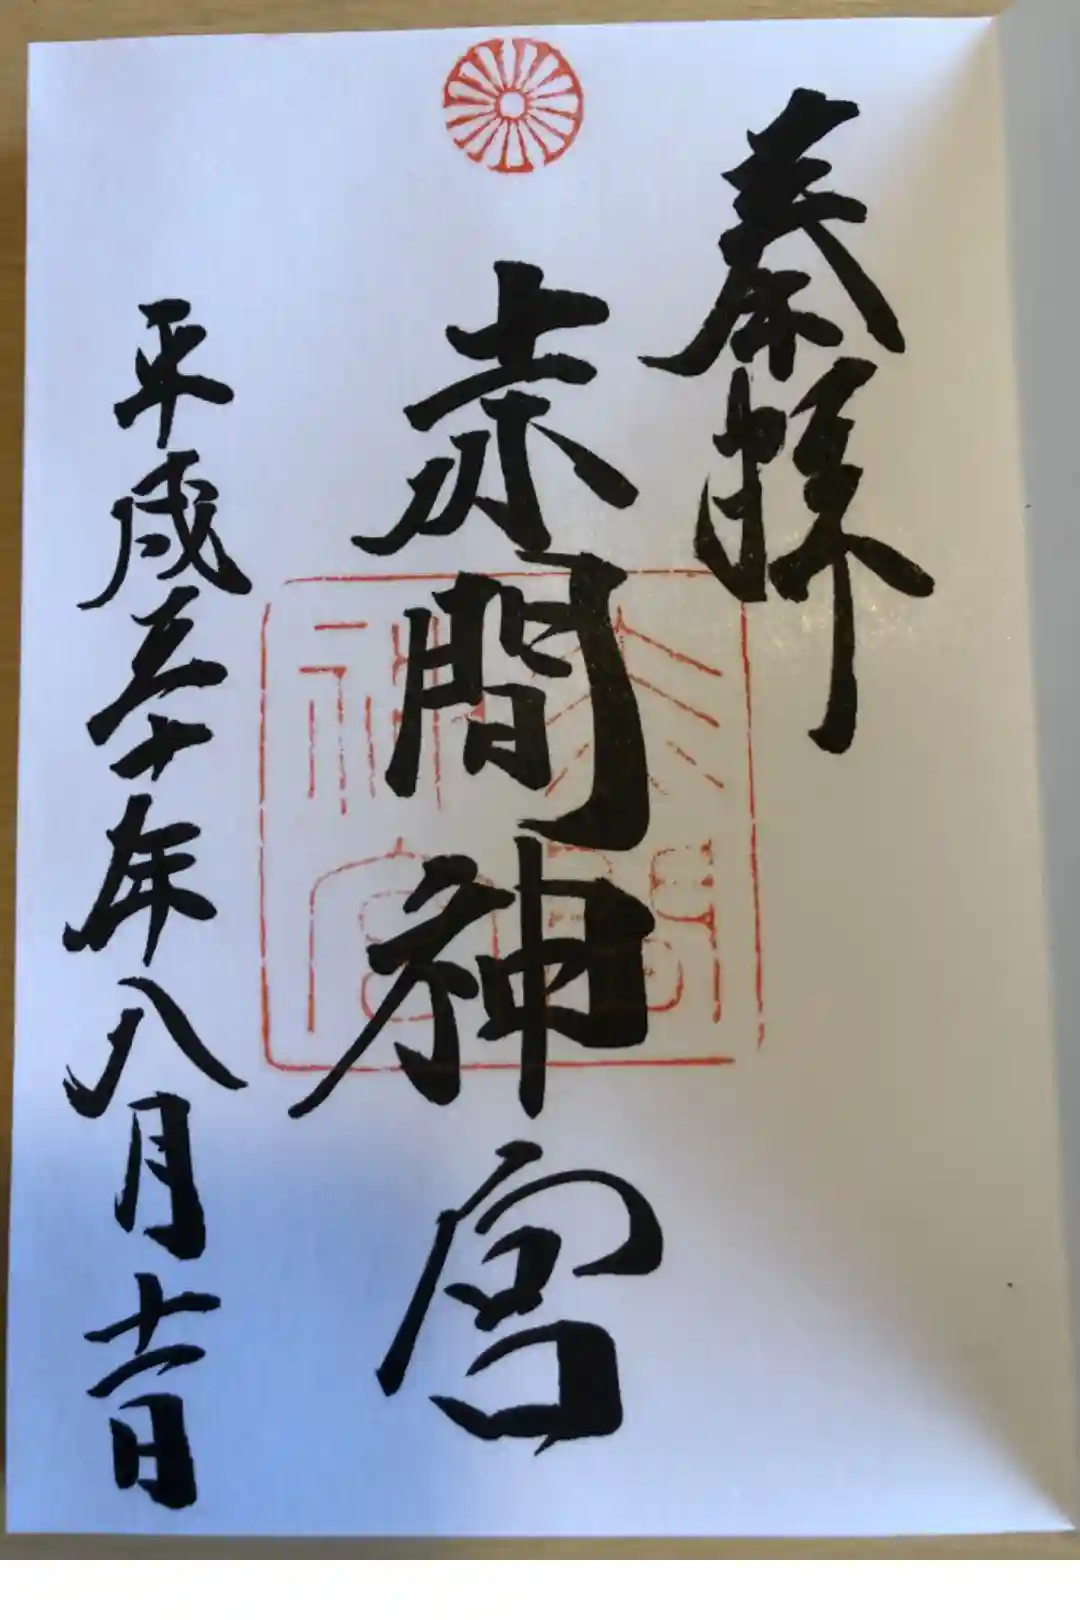 奉拝
赤間神宮
平成三十年八月十一日
赤間神宮